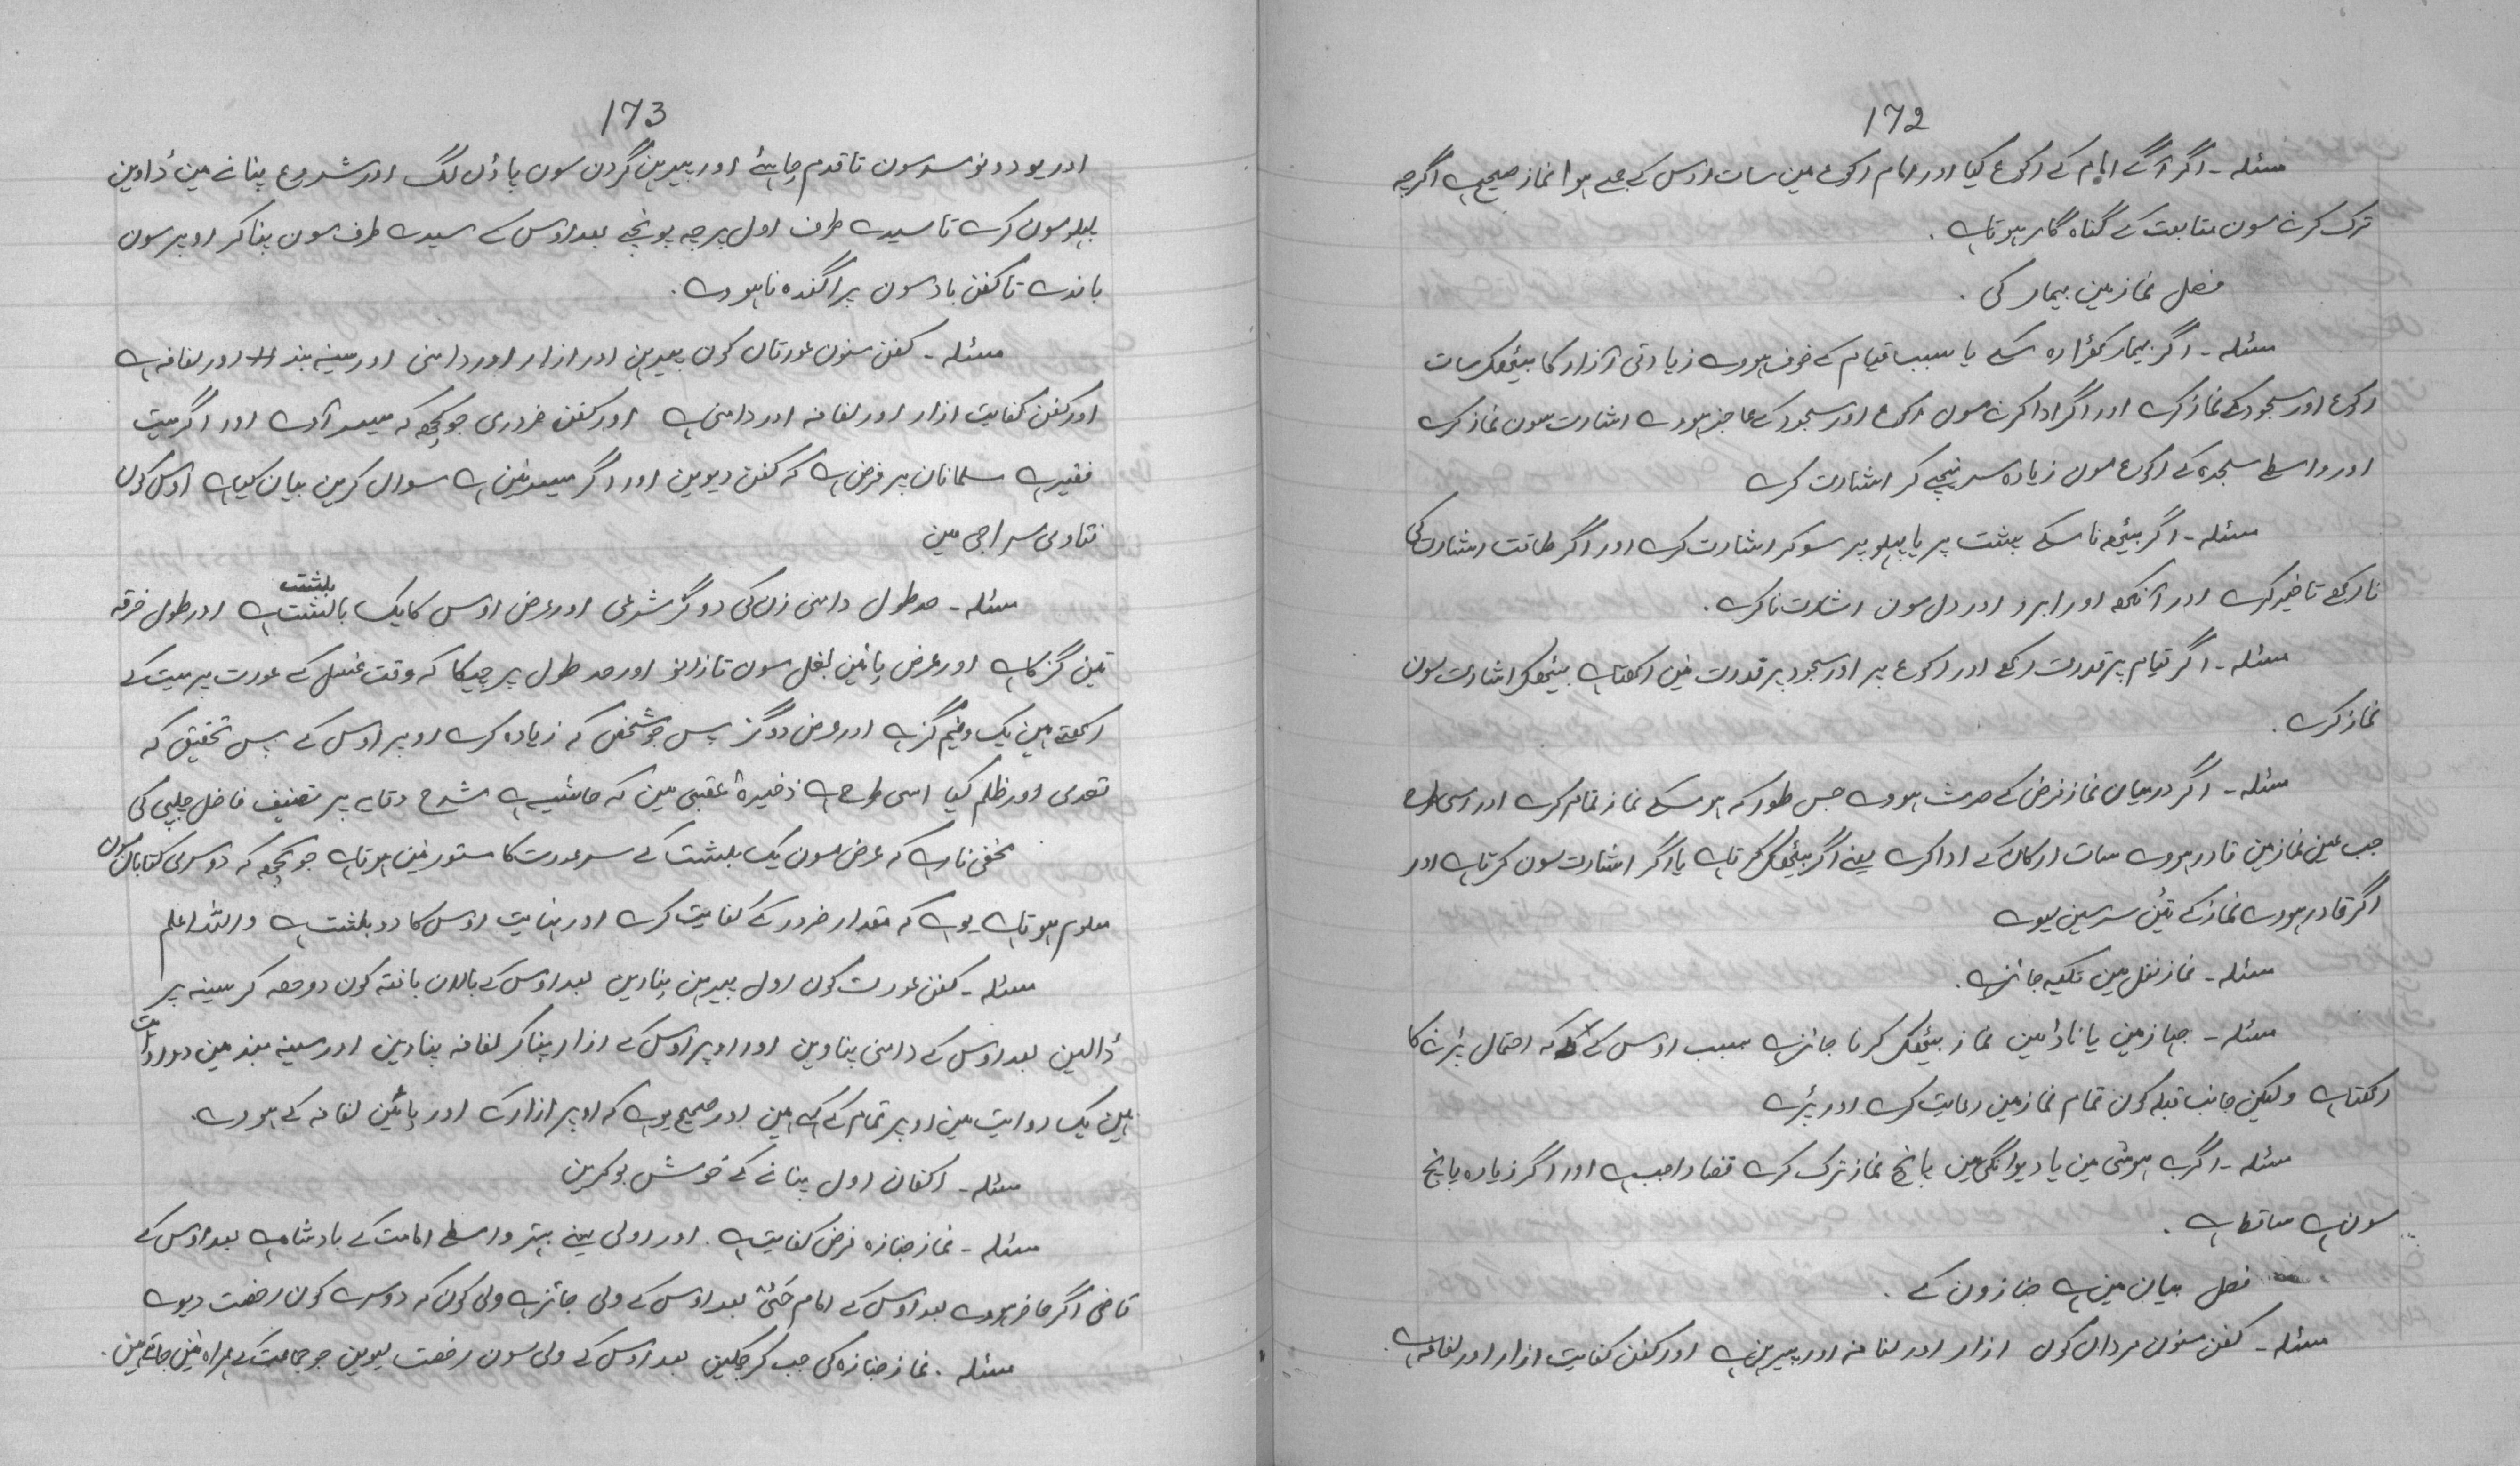 172
مسئلہ ۔ اگر آگے امام کے رکوع کیا اور امام رکوع مین سات اوس کے جمع ہوا نماز صحیح ہے اگرچہ
ترک کرنے سون متابعت کے گناہ گار ہوتا ہے ۔
فصل نماز مین بیمار کی ۔
مسئلہ ۔ اگر بیمار کھڑا رہ سکے یا سبب قیام کے خوف ہووے زیادتی آزار کا بیٹھکر سات
رکوع اور سجود کے نماز کرے اور اگر ادا کرنے سون رکوع اور سجود کے عاجز ہووے اشارت سون نماز کرے
اور واسطے سجدہ کے رکوع سون زیادہ سر نیچے کر اشارت کرے
مسئلہ ۔ اگر بیٹھ نا سکے پشت پر یا پہلو پر سو کر اشارت کرے اور اگر طاقت اشارت کی
نا رکھے تاخیر کرے اور آنکھ اور ابرو اور دل سون اشارت نا کرے ۔
مسئلہ ۔ اگر قیام پر قدرت رکھے اور رکوع پر اور سجود پر قدرت نہین رکھتا ہے بیٹھکر اشارت سون
نماز کرے ۔
مسئلہ ۔ اگر درمیان نماز فرض کے حدث ہووے جس طور کہ ہو سکے نماز تمام کرے اور اسی طرح
جب عین نماز مین قادر ہووے سات ارکان کے ادا کرے یعنے اگر بیٹھکر کرتا ہے یا اگر اشارت سون کرتا ہے اور
اگر قادر ہووے نماز کے تئین سر سین لیوے
مسئلہ ۔ نماز نفل مین تکیہ جائز ہے ۔
مسئلہ ۔ جہاز مین یا ناؤ مین نماز بیٹھکر کرنا جائز ہے سبب اوس کے کہ احتمال پڑنے کا
رکھتا ہے ولیکن جانب قبلہ کون تمام نماز مین رعایت کرے اور پڑے
مسئلہ ۔ اگر بے ہوشی مین یا دیوانگی مین پانچ نماز ترک کرے قضا واجب ہے اور اگر زیادہ پانچ
سون ہے ساقط ہے ۔
فصل بیان مین ہے جنازون کے ۔
مسئلہ ۔ کفن سنون مردان کون ازار اور لفافہ اور پیرہن ہے اور کفن کفایت ازار اور لفافہ ہے ۔
173
اور یو دونو سر سون تا قدم چاہئے اور پیرہن گردن سون پاؤن لگ اور شروع پنانے مین ڈاوین
پہلو سون کرے تا سیدے طرف اول پرچہ پونچے بعد اوس کے سیدے طرف سون پنا کر اوپر سون
باندے تا کفن باد سون پراگندہ نا ہووے ۔
مسئلہ ۔ کفن سنون عورتان کون پیرہن اور ازار اور دامنی اور سینہ بند اور لفافہ ہے
اور کفن کفایت ازار اور لفافہ اور دامنی ہے اور کفن ضروری جو کچھ کہ میسر آوے اور اگر میت
فقیر ہے مسلمانان پر فرض ہے کہ کفن دیوین اور اگر میسر نہین ہے سوال کرین بیان کیا ہے اوس کون
فتاوی سراجی مین
مسئلہ ۔ حد طول دامنی زن کی دو گز شرعی اور عرض اوس کا یک بالشت بلشت ہے اور طول خرقہ
تین گز کا ہے اور عرض پائین بغل سون تا زانو اور حد طول پرچیکا کہ وقت غسل کے عورت پر میت کے
رکھتے ہین یک و نیم گز ہے اور عرض دو گز پس جو شخص کہ زیادہ کرے اوپر اوس کے پس تحقیق کہ
تعدی اور ظلم کیا اسی طرح ہے ذخیرۂ عقبی مین کہ حاشیہ ہے شرح وقایہ پر تصنیف فاضل چلپی کی
مخفی نا رہے کہ عرض سون یک بلشت کے سر عورت کا مستور نہین ہوتا ہے جو کچھ کہ دوسری کتابان سون
معلوم ہوتا ہے یو ہے کہ مقدار ضرور کے کفایت کرے اور نہایت اوس کا دو بلشت ہے واللہ اعلم
مسئلہ ۔ کفن عورت کون اول پیرہن پناوین بعد اوس کے بالان بافتہ کون دو حصہ کر سینہ پر
ڈالین بعد اوس کے دامنی پناوین اور اوپر اوس کے ازار پنا کر لفافہ پناوین اور سینہ بند مین دو روایت
ہین یک روایت مین اوپر تمام کے ہین اور صحیح یو ہے کہ اوپر ازار کے اور پائین لفافہ کے ہووے ۔
مسئلہ ۔ اکفان اول پنانے کے خوش بو کرین
مسئلہ ۔ نماز جنازہ فرض کفایت ہے ۔ اور اولی یعنے بہتر واسطے امامت کے بادشاہ ہے بعد اوس کے
قاضی اگر حاضر ہووے بعد اوس کے امام حئی بعد اوس کے ولی جائز ہے ولی کون کہ دوسرے کون رخصت دیوے
مسئلہ ۔ نماز جنازہ کی جب کر چکین بعد اوس کے ولی سون رخصت لیوین جو جماعت کے ہمراہ نہین جاتے ہین ۔